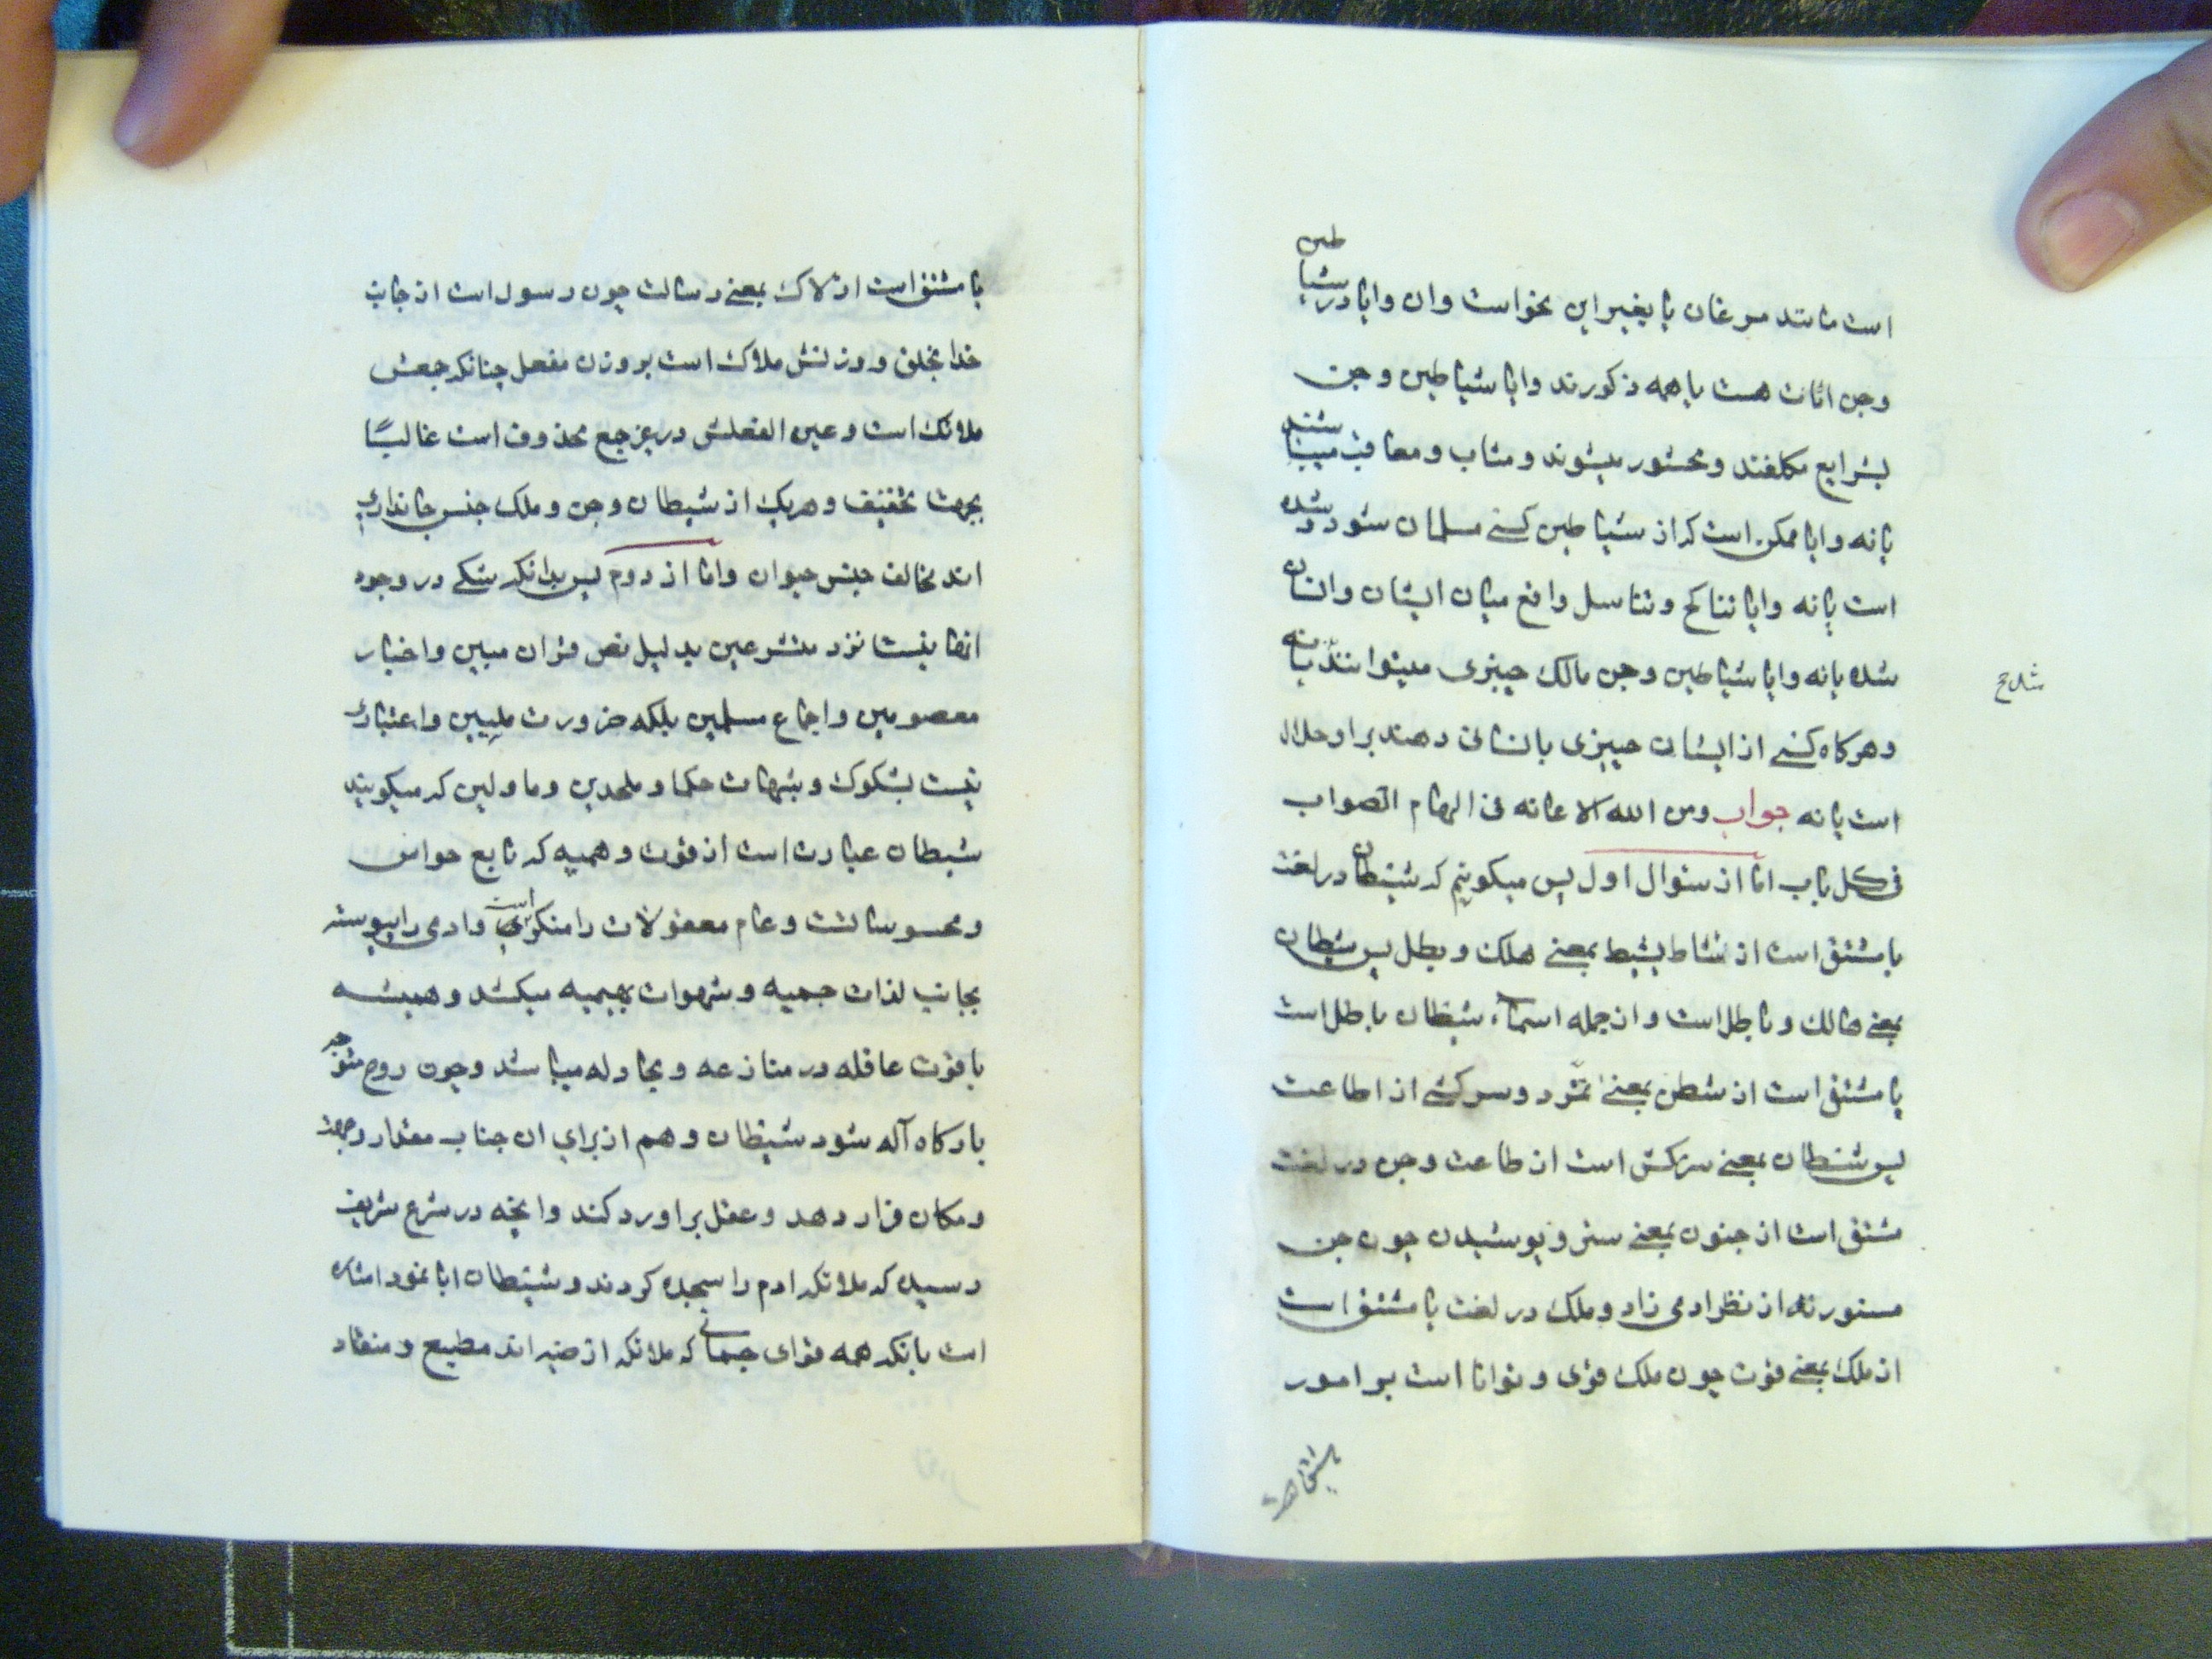 است مانند مرغان یا بغیر این نحواست وان وایا در شیاطین
وجن اناث هست یا همه ذکورند وایا شیاطین وجن
بشرایع مکلفند ومحشور میشوند ومثاب ومعاقب میباشند
یا نه وایا ممکن است که از شیاطین کسی مسلمان شود وشده
است یا نه وایا تناکح وتناسل واقع میان ایشان وانسان
شده یا نه وایا شیاطین وجن مالک چیزی میتوانند شد یا نه
وهرکاه کسی از ایشان چیزی بانسانی دهند بر او حلال
است یا نه جواب ومن الله الاعانه فی الهام الصواب
فی کل باب اما از سئوال اول پس میکوییم که شیطان در لغت
یا مشتق است از شاط یشیط بمعنی هلک وبطل پس شیطان
بمعنی هالک وباطل است واز جمله اسماء شیطان باطل است
یا مشتق است از شطن بمعنی تمرد وسرکشی از اطاعت
پس شیطان بمعنی سرکش است از طاعت وجن در لغت
مشتق است از جنون بمعنی ستر وپوشیدن چون جن
مستورند از نظر ادمی زاد وملک در لغت یا مشتق است
از ملک بمعنی قوت چون ملک قوی وتوانا است بر امور
یا مشتق است از لاک بمعنی رسالت چون رسول است از جانب
خدا بخلق ووزنش ملاک است بر وزن مفعل چنانکه جمعش
ملائک است وعین الفعلش در غیر جمع محذوف است غالبًا
بجهت تخفیف وهریک از شیطان وجن وملک جنس جاندار
اند مخالف جنس حیوان واما از دوم پس بدانکه شکی در وجود
انها نیست نزد متشرعین بدلیل نص قران مبین واخبار
معصومین واجماع مسلمین بلکه ضرورت ملیین واعتباری
نیست بشکوک وشبهات حکما وملحدین وماولین که میکویند
شیطان عبارت است از قوت وهمیه که تابع حواس
ومحسوسا تست وعام معقولات را منکر است وادمی را پیوسته
بجانب لذات جسمیه وشهوات بهیمیه میکشد وهمیشه
با قوت عاقله در منازعه ومجادله میباشد وچون روح متوجه
بارکاه آله شود شیطان وهم از برای ان جناب مقدار وجهت
ومکان قرار دهد وعقل بر او رد کند وانچه در شرع شریف
رسیده که ملائکه ادم را سجده کردند وشیطان ابا نمود اشاره
است بانکه همه قوای جسمانی که ملائکه ارضیه اند مطیع ومنقاد